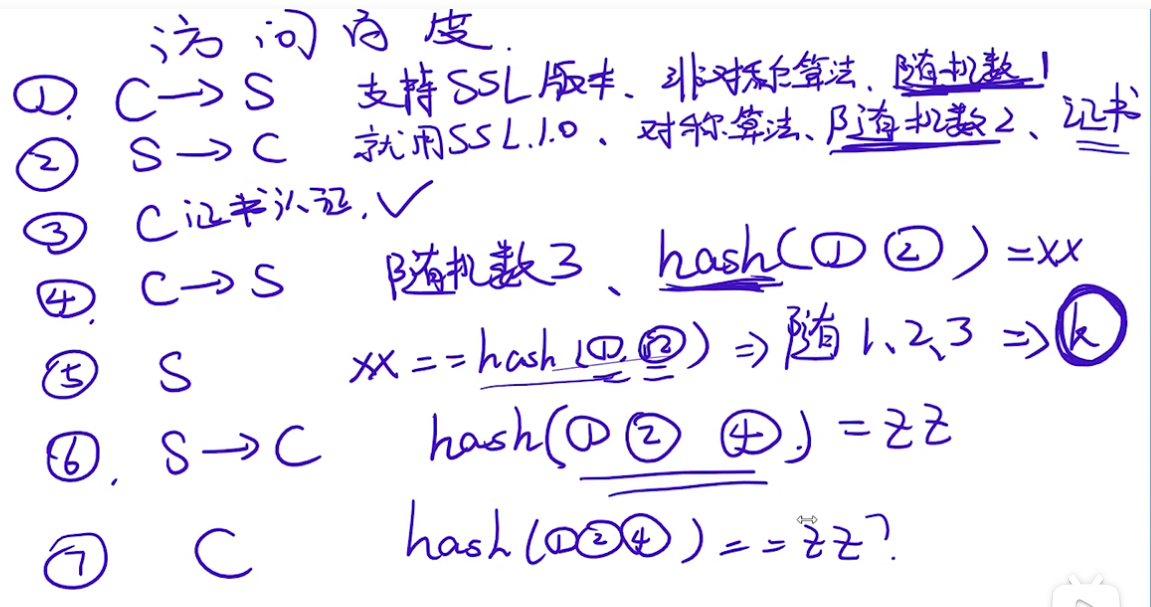 访问百度.
①. C→S 支持SSL版本、非对称算法、随机数1
② S→C 就用SSL.1.0、对称算法、随机数2、证书
③ C证书认证.✓
④. C→S 随机数3、hash(① ②)=xx
⑤ S xx==hash(①.②)⇒随1、2、3⇒k
⑥. S→C hash(① ② ④.)=zz
⑦ C hash(①②④)==zz?